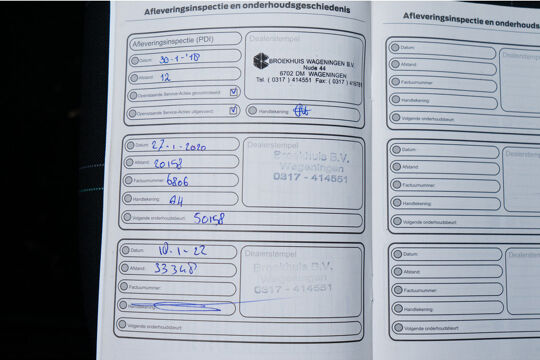 Afleveringsinspectie en onderhoudsgeschiedenis
Afleveringsinspectie (PDI)
Dealerstempel
Datum: 30-1-'18
BROEKHUIS WAGENINGEN B.V.
Nude 44
6702 DM WAGENINGEN
Tel. ( 0317 ) 414551 Fax: ( 0317 )
Afstand: 12
Openstaande Service-Acties gecontroleerd:
Openstaande Service-Acties uitgevoerd:
Handtekening:
Datum: 27-1-2020
Dealerstempel
Broekhuis B.V.
Wageningen
0317 - 414551
Afstand: 20158
Factuurnummer: 6806
Handtekening:
Volgende onderhoudsbeurt: 50158
Datum: 10-1-22
Dealerstempel
Broekhuis B.V.
Wageningen
0317 - 414551
Afstand: 33348
Factuurnummer:
Handtekening:
Volgende onderhoudsbeurt:
Afleveringsinspectie en onderhouds
Datum:
Dealerstempel
Afstand:
Factuurnummer:
Handtekening:
Volgende onderhoudsbeurt:
Datum:
Dealerstem
Afstand:
Factuurnummer:
Handtekening:
Volgende onderhoudsbeurt:
Datum:
Dealerste
Afstand:
Factuurnummer:
Handtekening:
Volgende onderhoudsbeurt: